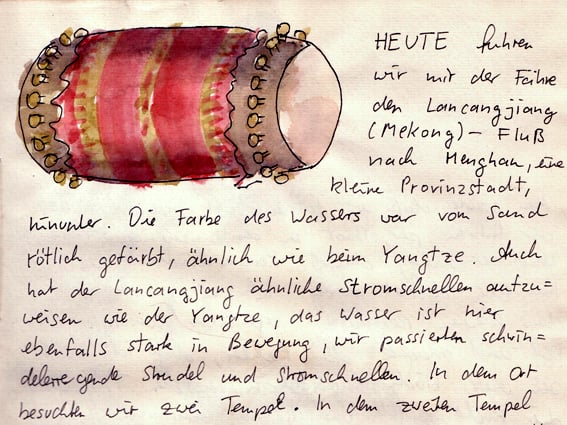 HEUTE fuhren
wir mit der Fähre
den Lancangjiang
(Mekong) - Fluß
nach Menghan, eine
kleine Provinzstadt,
hinunter. Die Farbe des Wassers war vom Sand
rötlich gefärbt, ähnlich wie beim Yangtze. Auch
hat der Lancangjiang ähnliche Stromschnellen aufzu=
weisen wie der Yangtze, das Wasser ist hier
ebenfalls stark in Bewegung, wir passierten schwin=
delerregende Strudel und Stromschnellen. In dem Ort
besuchten wir zwei Tempel. In dem zweiten Tempel